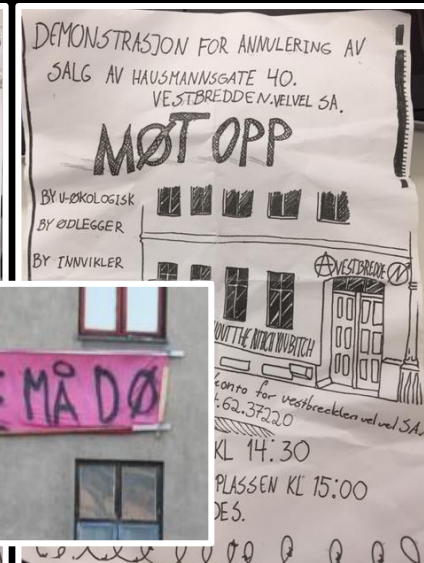 DEMONSTRASJON FOR ANNULERING AV
SALG AV HAUSMANNSGATE 40.
VESTBREDDEN.VELVEL SA.
MØT OPP
BY U-ØKOLOGISK
BY ØDLEGGER
BY INNVIKLER
VESTBREDDE
THE BITCH YOU BITCH
konto for vestbredden vel vel SA.
.62.37220
KL 14.30
PLASSEN KL 15:00
DES.
MÅ DØ